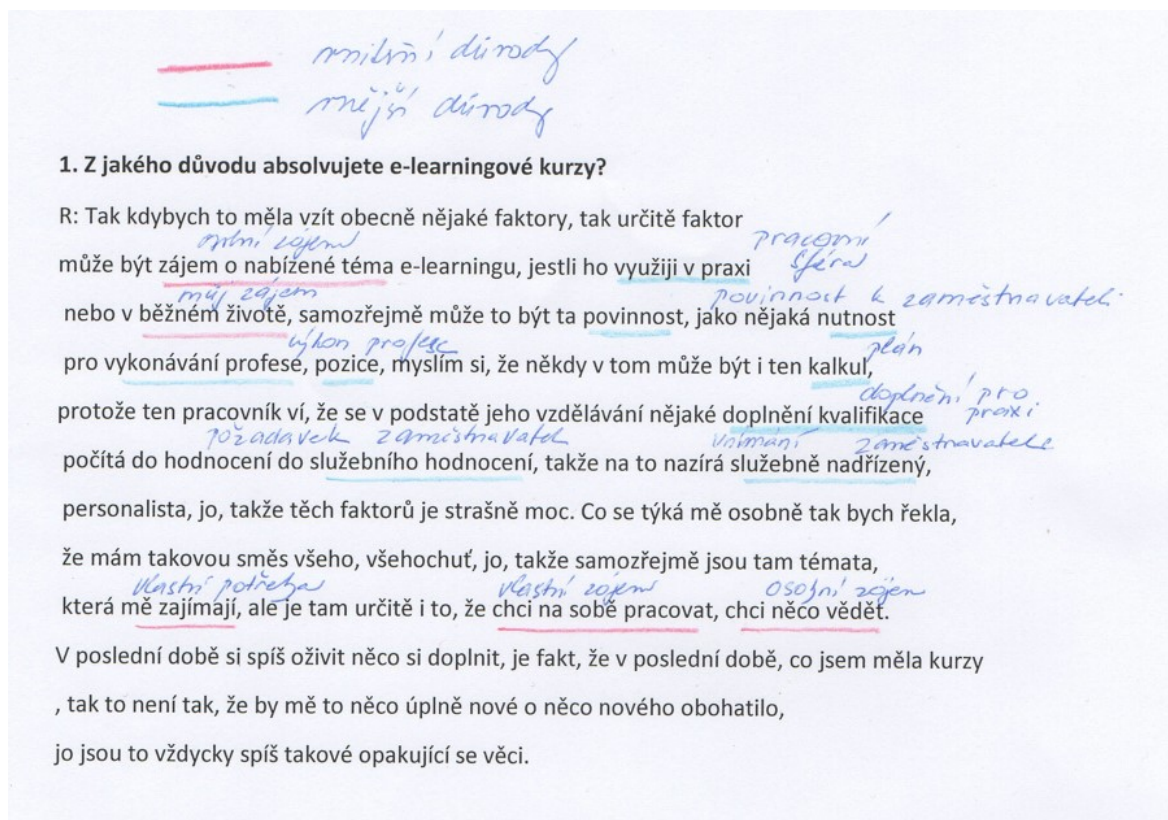 vnitřní důvody
vnější důvody
1. Z jakého důvodu absolvujete e-learningové kurzy?
R: Tak kdybych to měla vzít obecně nějaké faktory, tak určitě faktor
osobní zájem pracovní
může být zájem o nabízené téma e-learningu, jestli ho využiji v praxi sféra
můj zájem povinnost k zaměstnavateli
nebo v běžném životě, samozřejmě může to být ta povinnost, jako nějaká nutnost
výkon profese plán
pro vykonávání profese, pozice, myslím si, že někdy v tom může být i ten kalkul,
doplnění pro
protože ten pracovník ví, že se v podstatě jeho vzdělávání nějaké doplnění kvalifikace praxi
požadavek zaměstnavatele vnímání zaměstnavatele
počítá do hodnocení do služebního hodnocení, takže na to nazírá služebně nadřízený,
personalista, jo, takže těch faktorů je strašně moc. Co se týká mě osobně tak bych řekla,
že mám takovou směs všeho, všehochuť, jo, takže samozřejmě jsou tam témata,
vlastní potřeba vlastní zájem osobní zájem
která mě zajímají, ale je tam určitě i to, že chci na sobě pracovat, chci něco vědět.
V poslední době si spíš oživit něco si doplnit, je fakt, že v poslední době, co jsem měla kurzy
, tak to není tak, že by mě to něco úplně nové o něco nového obohatilo,
jo jsou to vždycky spíš takové opakující se věci.